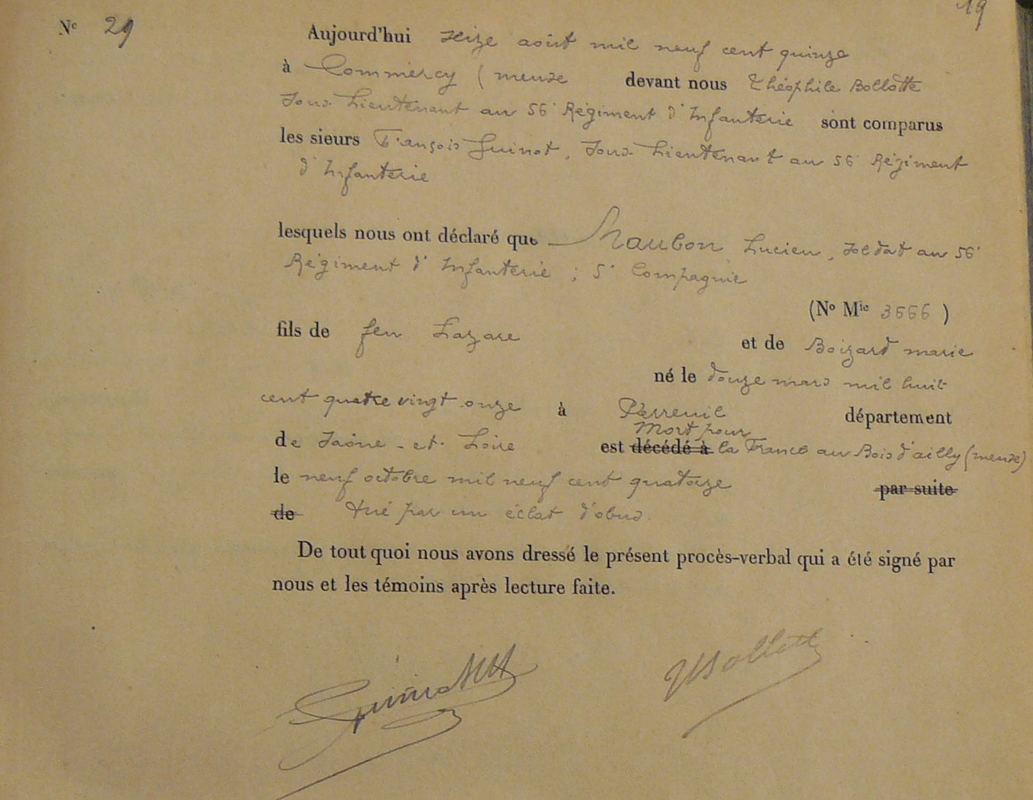 Nº 29
19
Aujourd'hui seize août mil neuf cent quinze
à Commercy (meuse devant nous Théophile Bollotte
Sous Lieutenant au 56e Régiment d'Infanterie sont comparus
les sieurs François Guinot, Sous Lieutenant au 56e Régiment
d'Infanterie
lesquels nous ont déclaré que Naulon Lucien, soldat au 56e
Régiment d'Infanterie ; 5e Compagnie
(No Mle 3666 )
fils de feu Lazare et de Boizard marie
né le douze mars mil huit
cent quatre vingt onze à Perreuil département
Mort pour
de Saône - et - Loire est décédé à la France au Bois d'ailly (meuse)
le neuf octobre mil neuf cent quatorze par suite
de tué par un éclat d'obus.
De tout quoi nous avons dressé le présent procès-verbal qui a été signé par
nous et les témoins après lecture faite.
Bollotte